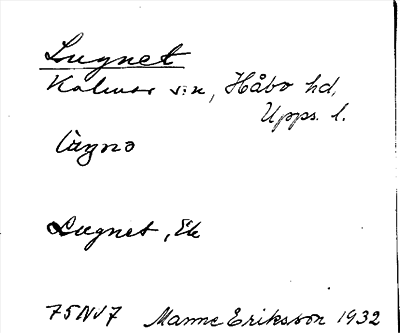 Lugnet
Kalmar s:n, Håbo hd,
Upps. l.
Lugnet, Ek
75NV7 Manne Eriksson 1932